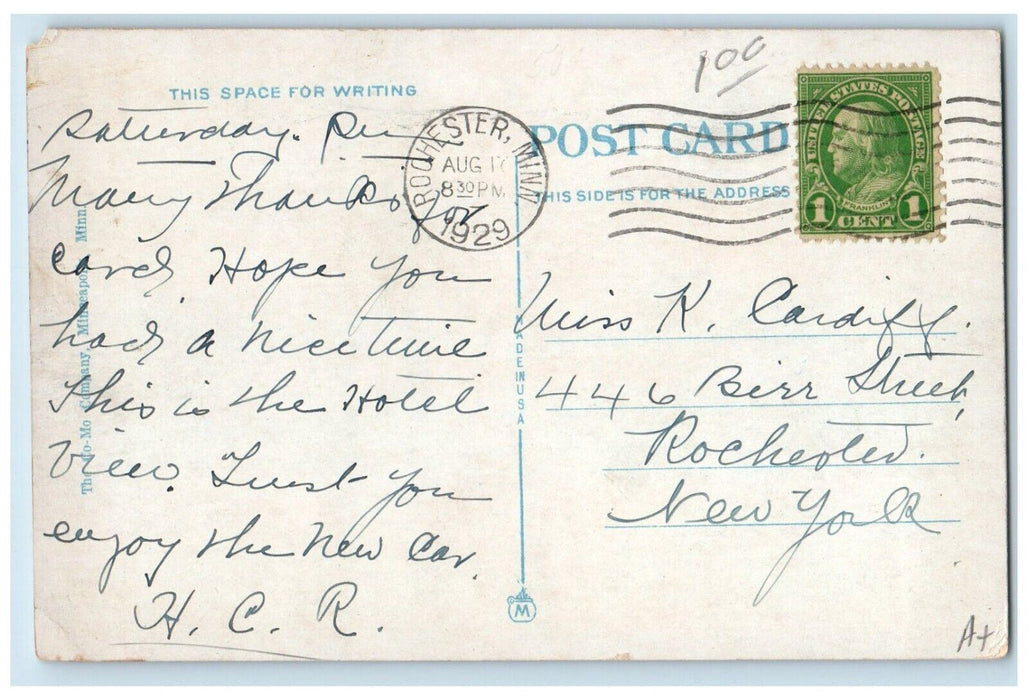 THIS SPACE FOR WRITING
Saturday. Pm
Many Thanks for
card, Hope you
had a nice time
This is the Hotel
View. Trust you
enjoy the new car.
H. C. R.
The Co-Mo Company, Minneapolis, Minn.
ROCHESTER, MINN.
AUG 17
8 30 PM
1929
MADE IN USA
M
1 00
POST CARD
THIS SIDE IS FOR THE ADDRESS
UNITED STATES POSTAGE
FRANKLIN
1 CENT 1
Miss K. Cardiff.
446 Birr Street,
Rochester.
New York
A+